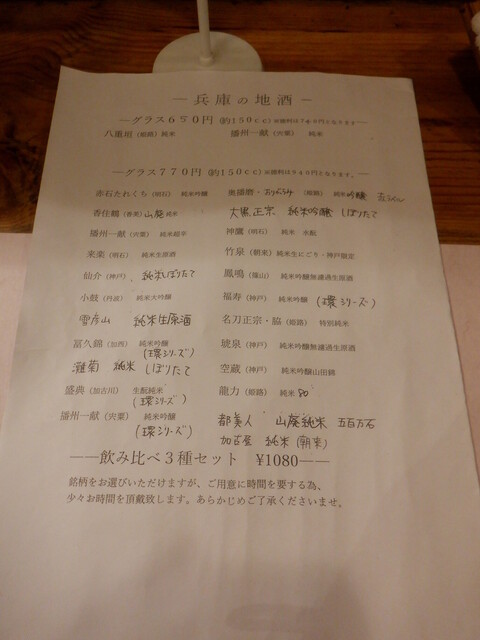 ―兵庫の地酒―
―グラス650円 (約150cc) ※燗料は760円となります―
八重垣 (姫路) 純米 播州一献 (宍粟) 純米
―グラス770円 (約150cc) ※燗料は940円となります。
赤石たれくち (明石) 純米吟醸 奥播磨・おりがらみ (姫路) 純米吟醸
香住鶴 (香美) 山廃 純米 大黒正宗 純米吟醸 しぼりたて
播州一献 (宍粟) 純米超辛 神鷹 (明石) 純米 水酛
来楽 (明石) 純米生原酒 竹泉 (朝来) 純米生にごり・神戸限定
仙介 (神戸) 純米しぼりたて 鳳鳴 (篠山) 純米吟醸無濾過生原酒
小鼓 (丹波) 純米大吟醸 福寿 (神戸) 純米吟醸 (環シリーズ)
雪彦山 純米生原酒 名刀正宗・脇 (姫路) 特別純米
富久錦 (加西) 純米吟醸 (環シリーズ) 琥泉 (神戸) 純米吟醸無濾過生原酒
灘菊 純米 しぼりたて 空蔵 (神戸) 純米吟醸山田錦
盛典 (加古川) 生酛純米 (環シリーズ) 龍力 (姫路) 純米 80
播州一献 (宍粟) 純米吟醸 (環シリーズ) 都美人 山廃純米 五百万石
加古屋 純米 (朝来)
――飲み比べ3種セット ¥1080――
銘柄をお選びいただけますが、ご用意に時間を要する為、
少々お時間を頂戴致します。あらかじめご了承くださいませ。